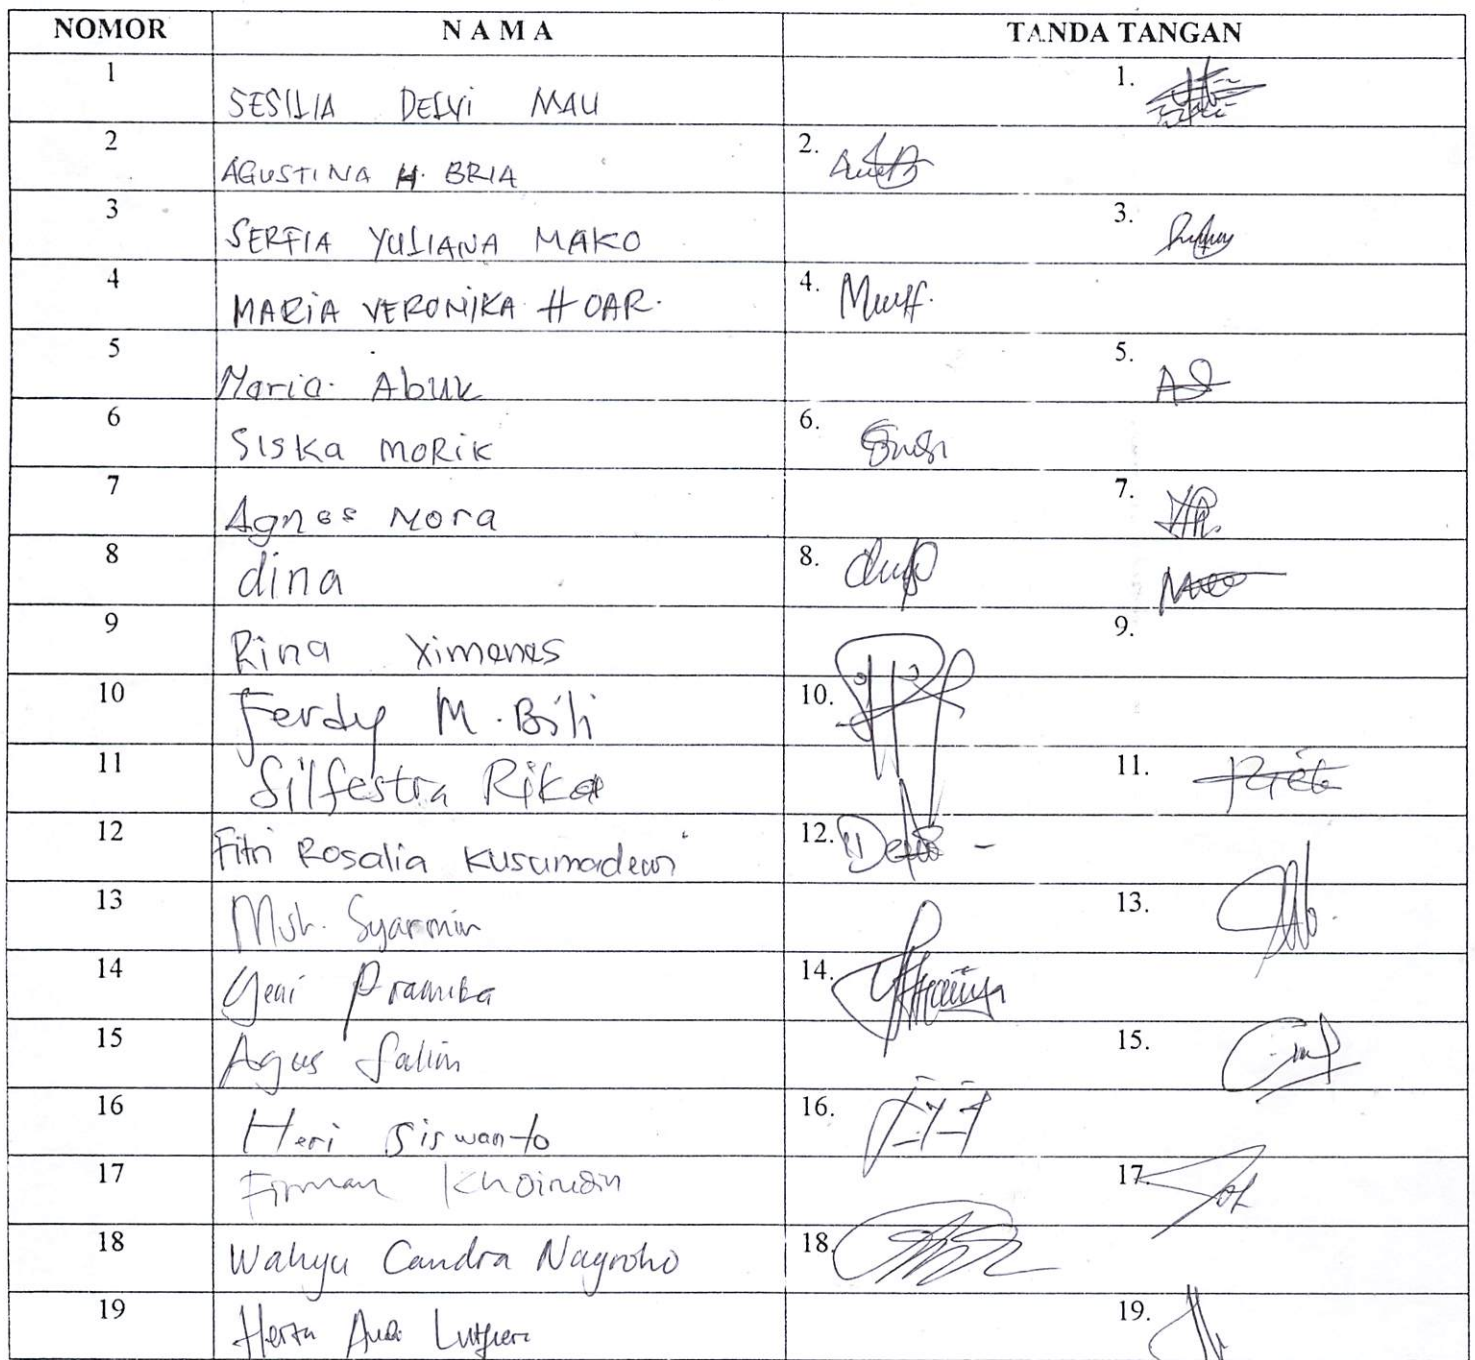 NOMOR NAMA TANDA TANGAN
1 SESILIA DELVI MAU 1.
2 AGUSTINA H. BRIA 2.
3 SERFIA YULIANA MAKO 3.
4 MARIA VERONIKA HOAR. 4.
5 Maria Abuk 5.
6 SISKa MORiK 6.
7 Agnes Nora 7.
8 dina 8.
9 Rina Ximenes 9.
10 Ferdy M. Bili 10.
11 Silfestra Rika 11.
12 Fitri Rosalia Kusumadewi 12.
13 Muh. Syarmin 13.
14 Yeni Pramika 14.
15 Agus Salim 15.
16 Heri Siswanto 16.
17 Firman Khoirudin 17
18 Wahyu Candra Nugroho 18.
19 19.